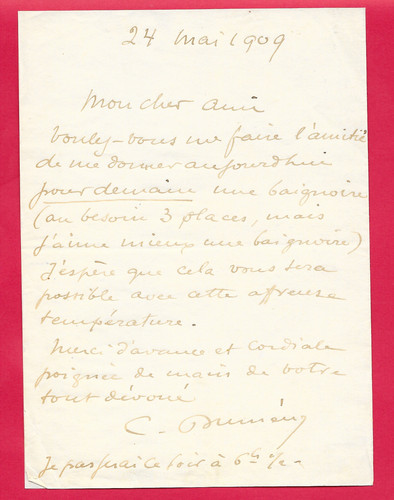 24 mai 1909
Mon cher ami
Voulez-vous me faire l'amitié
de me donner aujourdhui
pour demain une baignoire
(au besoin 3 places, mais
j'aime mieux une baignoire)
J'espère que cela vous sera
possible avec cette affreuse
température.
Merci d'avance et cordiale
poignée de main de votre
tout dévoué
C. Dumény
Je passerai ce soir à 6h 1/2